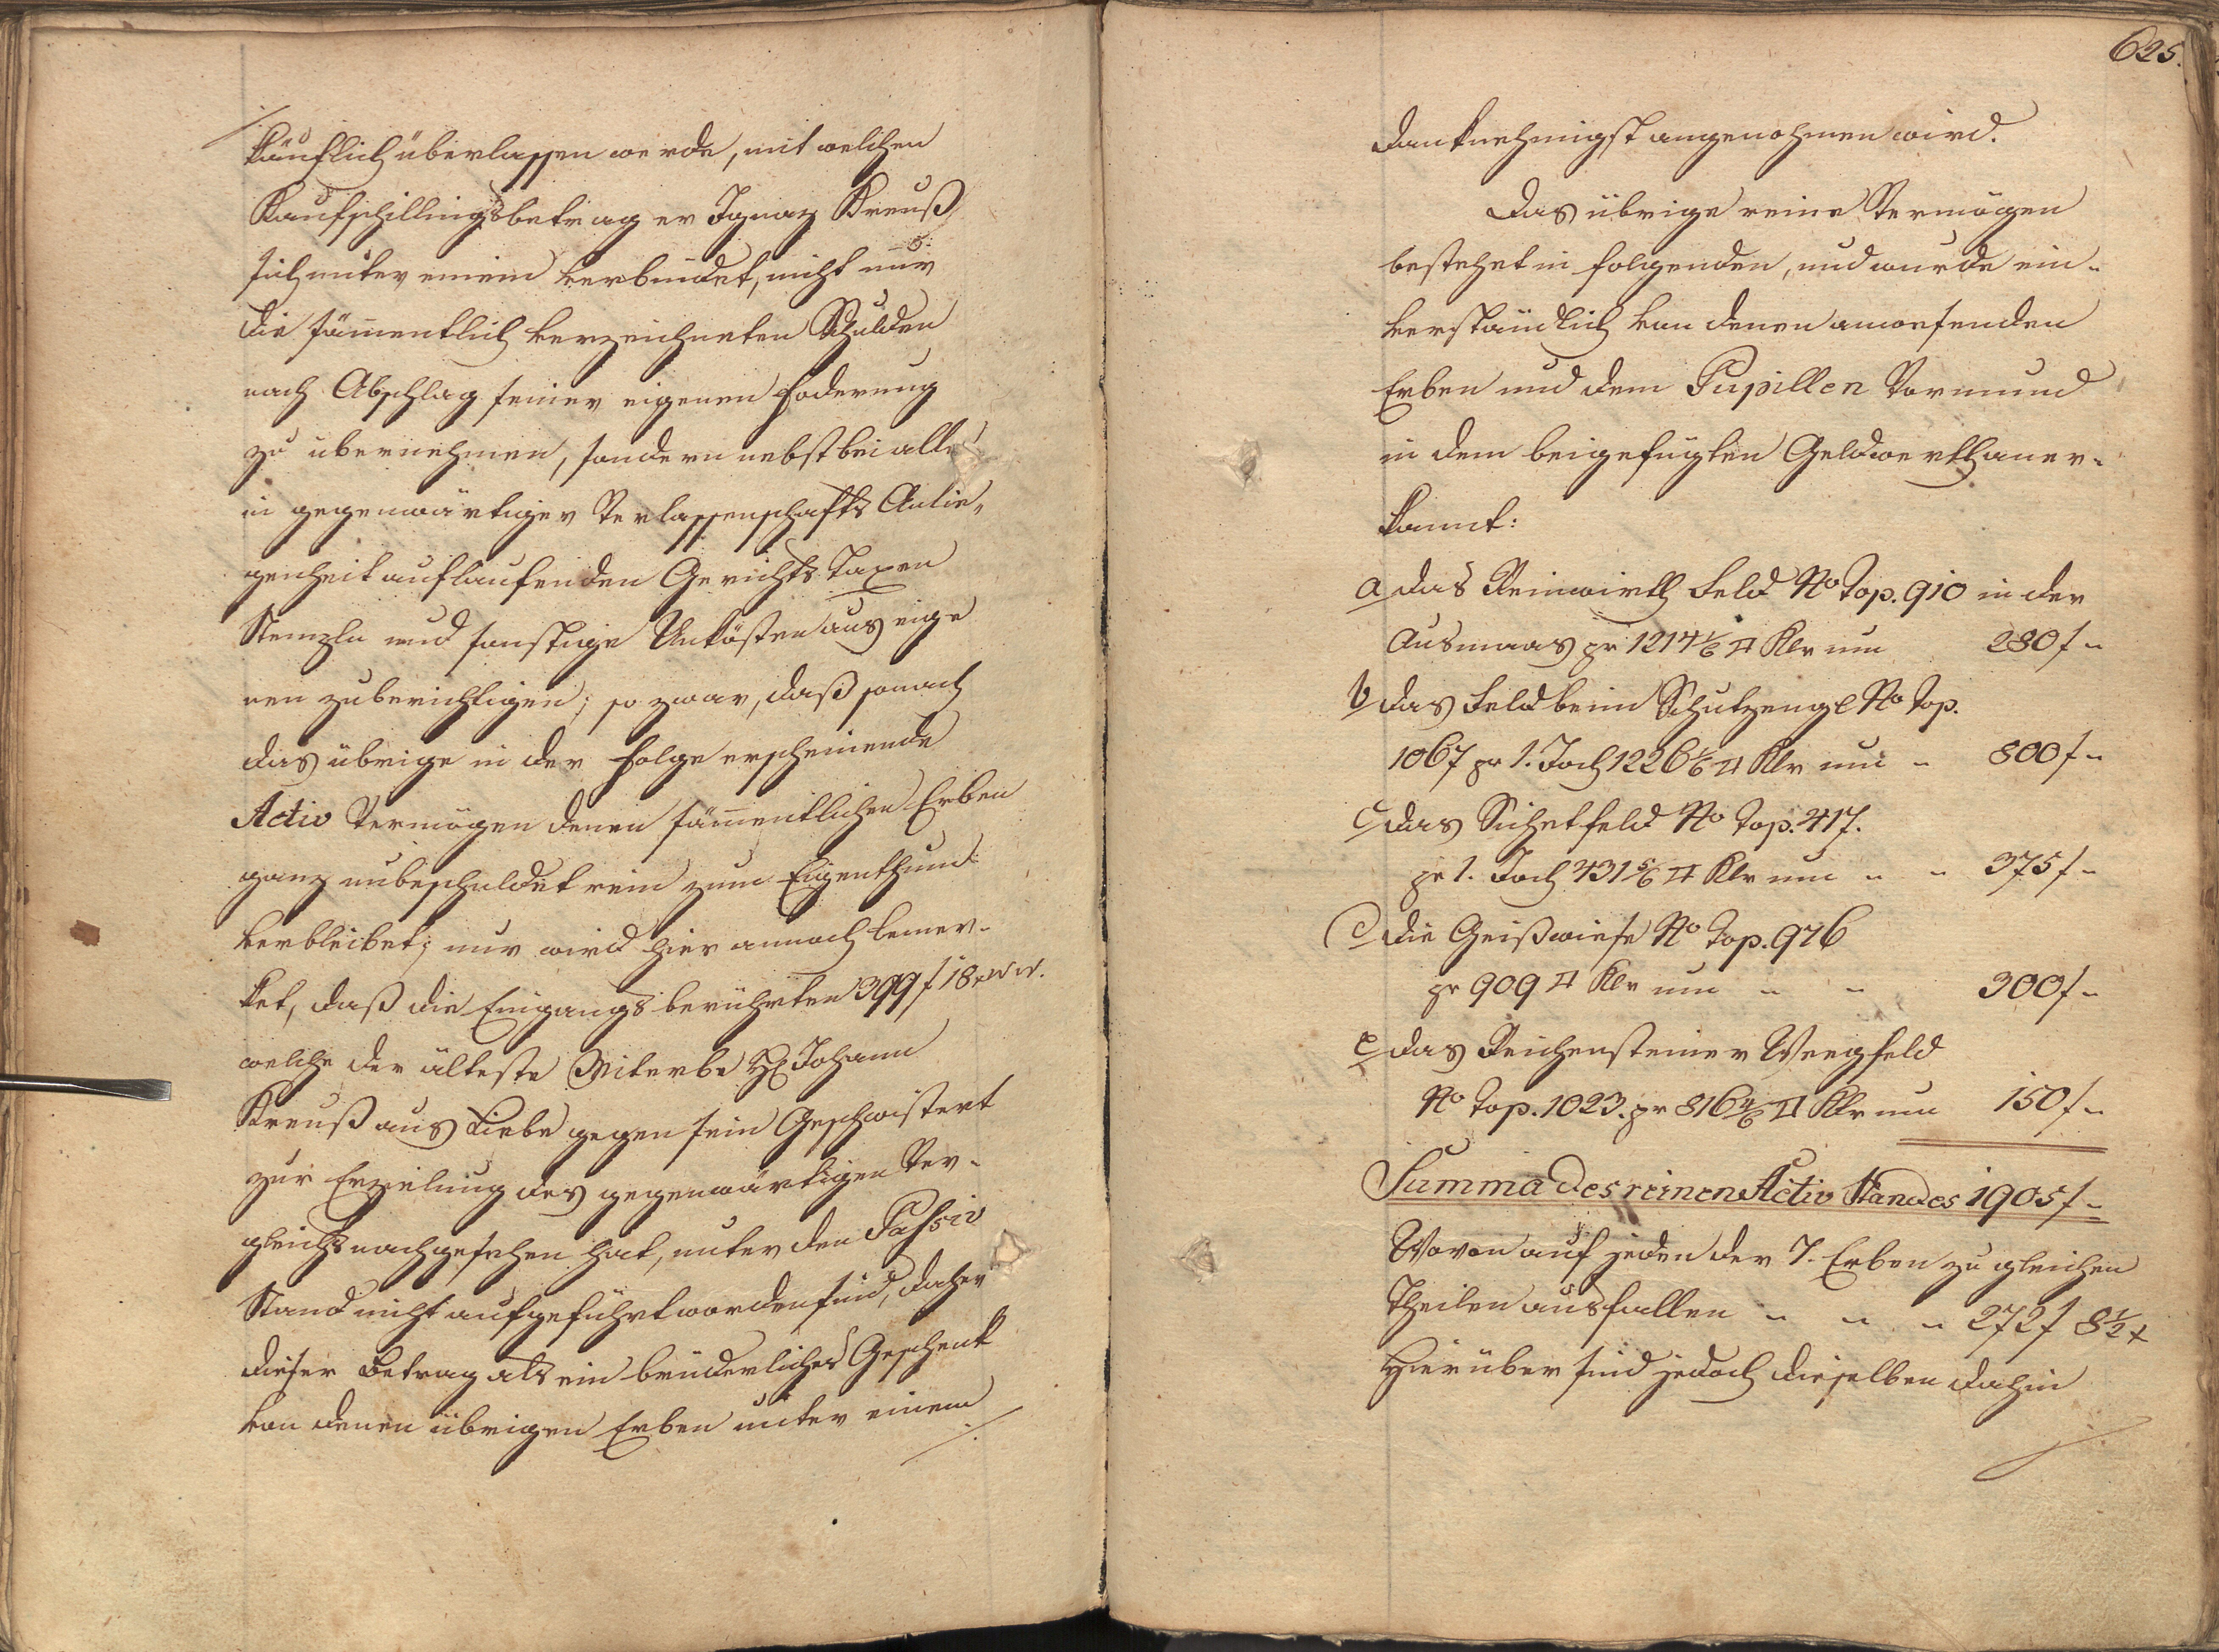 käuflich überlassen werde, mit welchen
Kaufschillingsbetrag er Ignaz Kreuß
sich unter einem verbindet, nicht nur
die sämentlich verzeichneten Schulden
nach Abschlag seiner eigenen Foderung
zu übernehmen, sondern nebstbei alle
in gegenwärtiger Verlassenschafts Anlie„
genheit auflaufenden Gerichts Taxen
Stempln und sonstige Unkösten aus eige
nen zuberichtigen; so zwar, daß sonach
das übrige in der Folge erscheinende
Activ Vermögen denen sämentlichen Erben
ganz unbeschuldet rein zum Eigenthum
verbleibet; nur wird hier annoch bemer-
ket, daß die Eingangs berührten 399 f 18 x W.W.
welche der älteste Miterbe H: Johann
Kreuß aus Liebe gegen sein Geschwistert
zur Erzielung des gegenwärtigen Ver-
gleichs nachgesehen hat, unter den Passiv
Stand nicht aufgeführt worden sind, daher
dieser Betrag als ein brüderliches Geschenk
von denen übrigen Erben unter einem
./.
625.
danknehmigst angenohmen wird.
Das übrige reine Vermögen
bestehet in folgenden, und wurde ein-
verständlich von denen anwesenden
Erben und dem Pupillen Vormund
in dem beigefügten Geldwerth aner-
kannt:
a das Reinwirth Feld No Top. 910 in der
Ausmaas pr 1214 1/6 □ Klr um 280 f "
b das Feld beim Schutzengl No Top.
1067 pr 1. Joch 1226 1/6 □ Klr um " 800 f "
c das Sichetfeld No Top. 417.
pr 1. Joch 431 5/6 □ Klr um " " 375 f "
d die Geißwiese No Top. 976
pr 909 □ Klr um " " 300 f "
e das Reichensteiner Weegfeld
No Top. 1023. pr 816 4/6 □ Klr um 150 f "
Summa des reinen Activ Standes 1905 f "
Wovon auf jeden der 7. Erben zu gleichen
Theilen ausfallen " " " 272 f 8 1/2 x
Hierüber sind jedoch dieselben dahin
./.